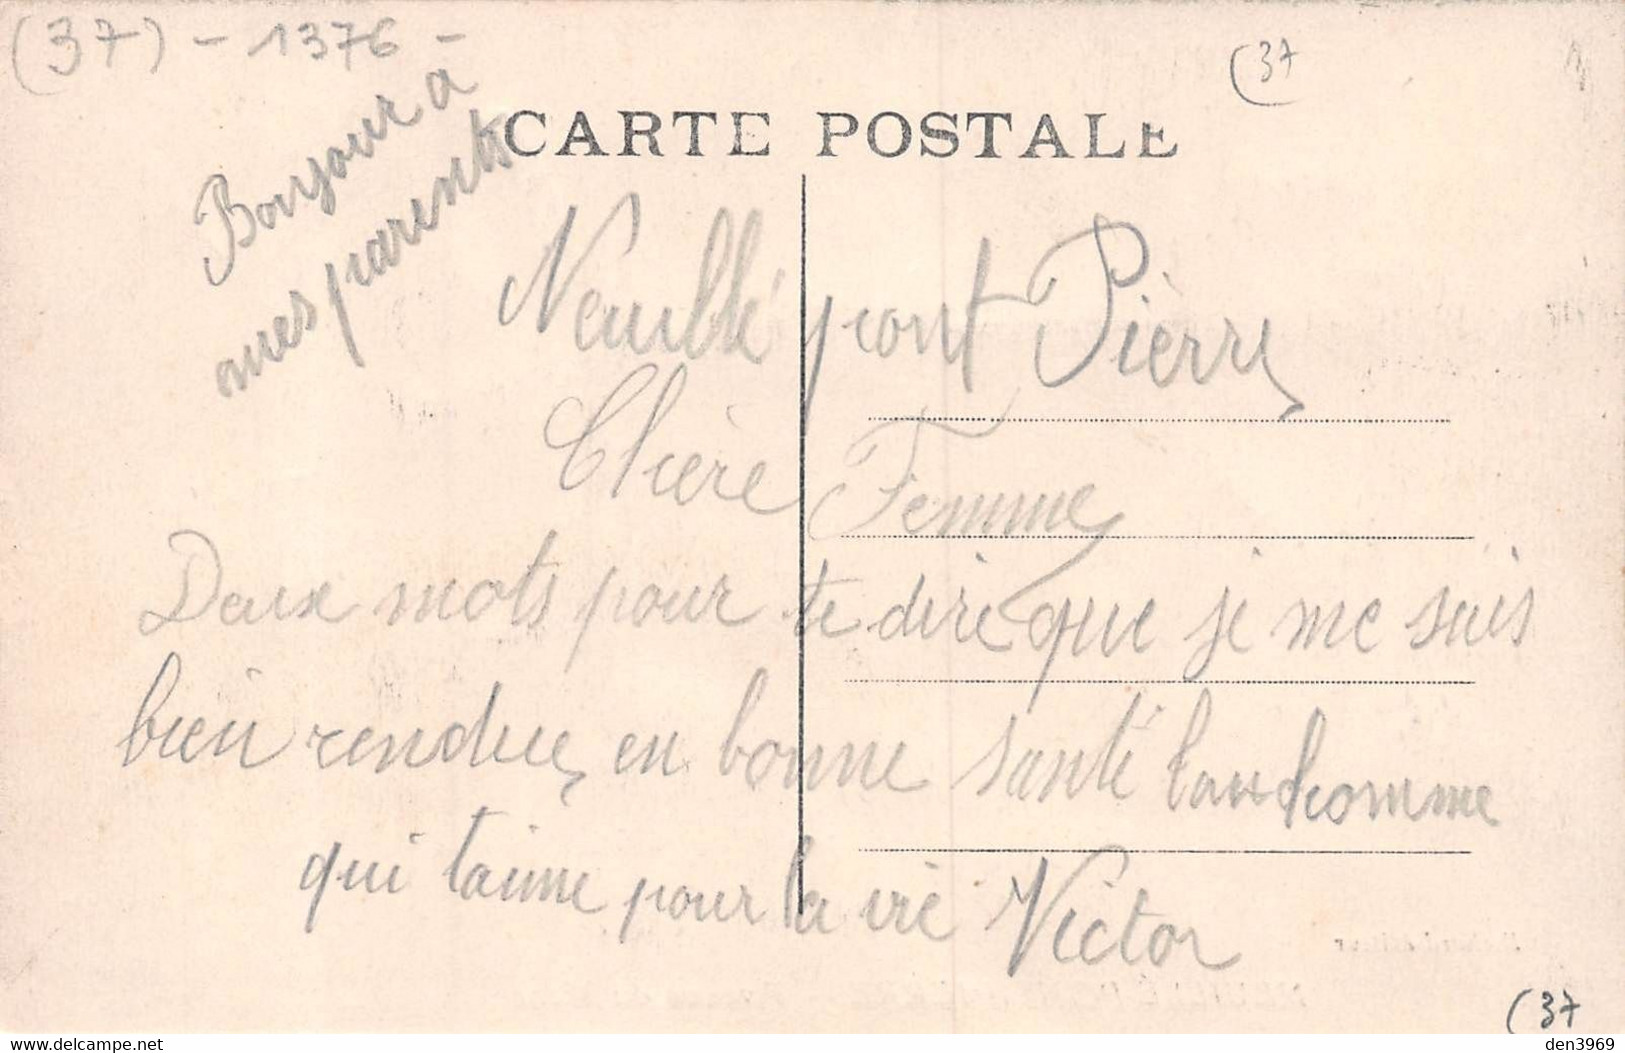 (37) - 1376 -
(37
Bonjour à
mes parents
CARTE POSTALE
Neuillé pont Pièrre
Chère Femme
Deux mots pour te dire que je me suis
bien rendue, en bonne santé ton homme
qui taime pour la vie Victor
(37
den3969